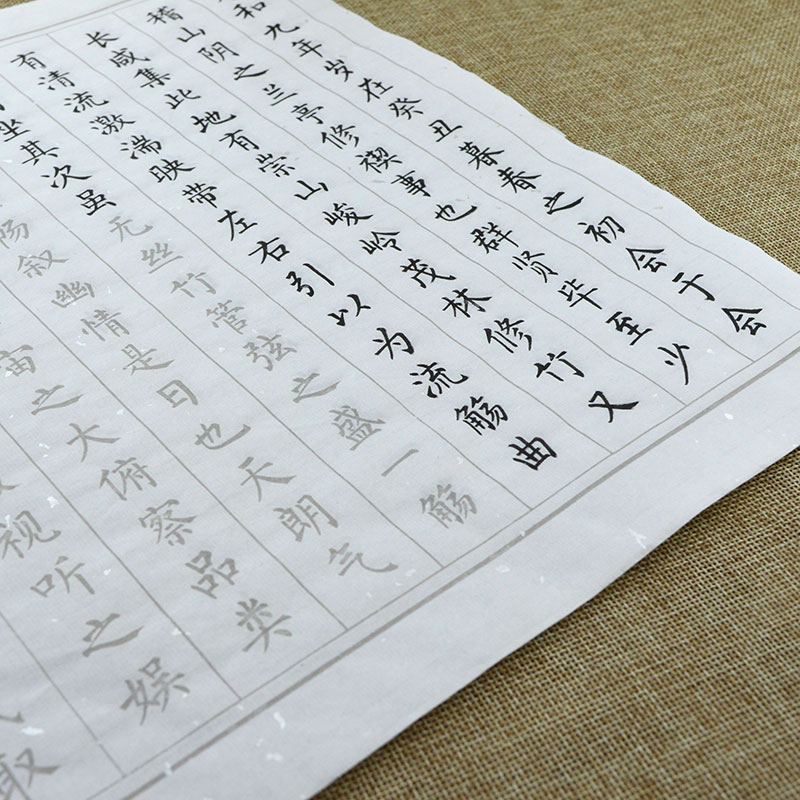 和九年岁在癸丑暮春之初会于会
稽山阴之兰亭修禊事也群贤毕至少
长咸集此地有崇山峻岭茂林修竹又
有清流激湍映带左右引以为流觞曲
坐其次虽无丝竹管弦之盛一觞
叙幽情是日也天朗气
宙之大俯察品类
视听之娱
取